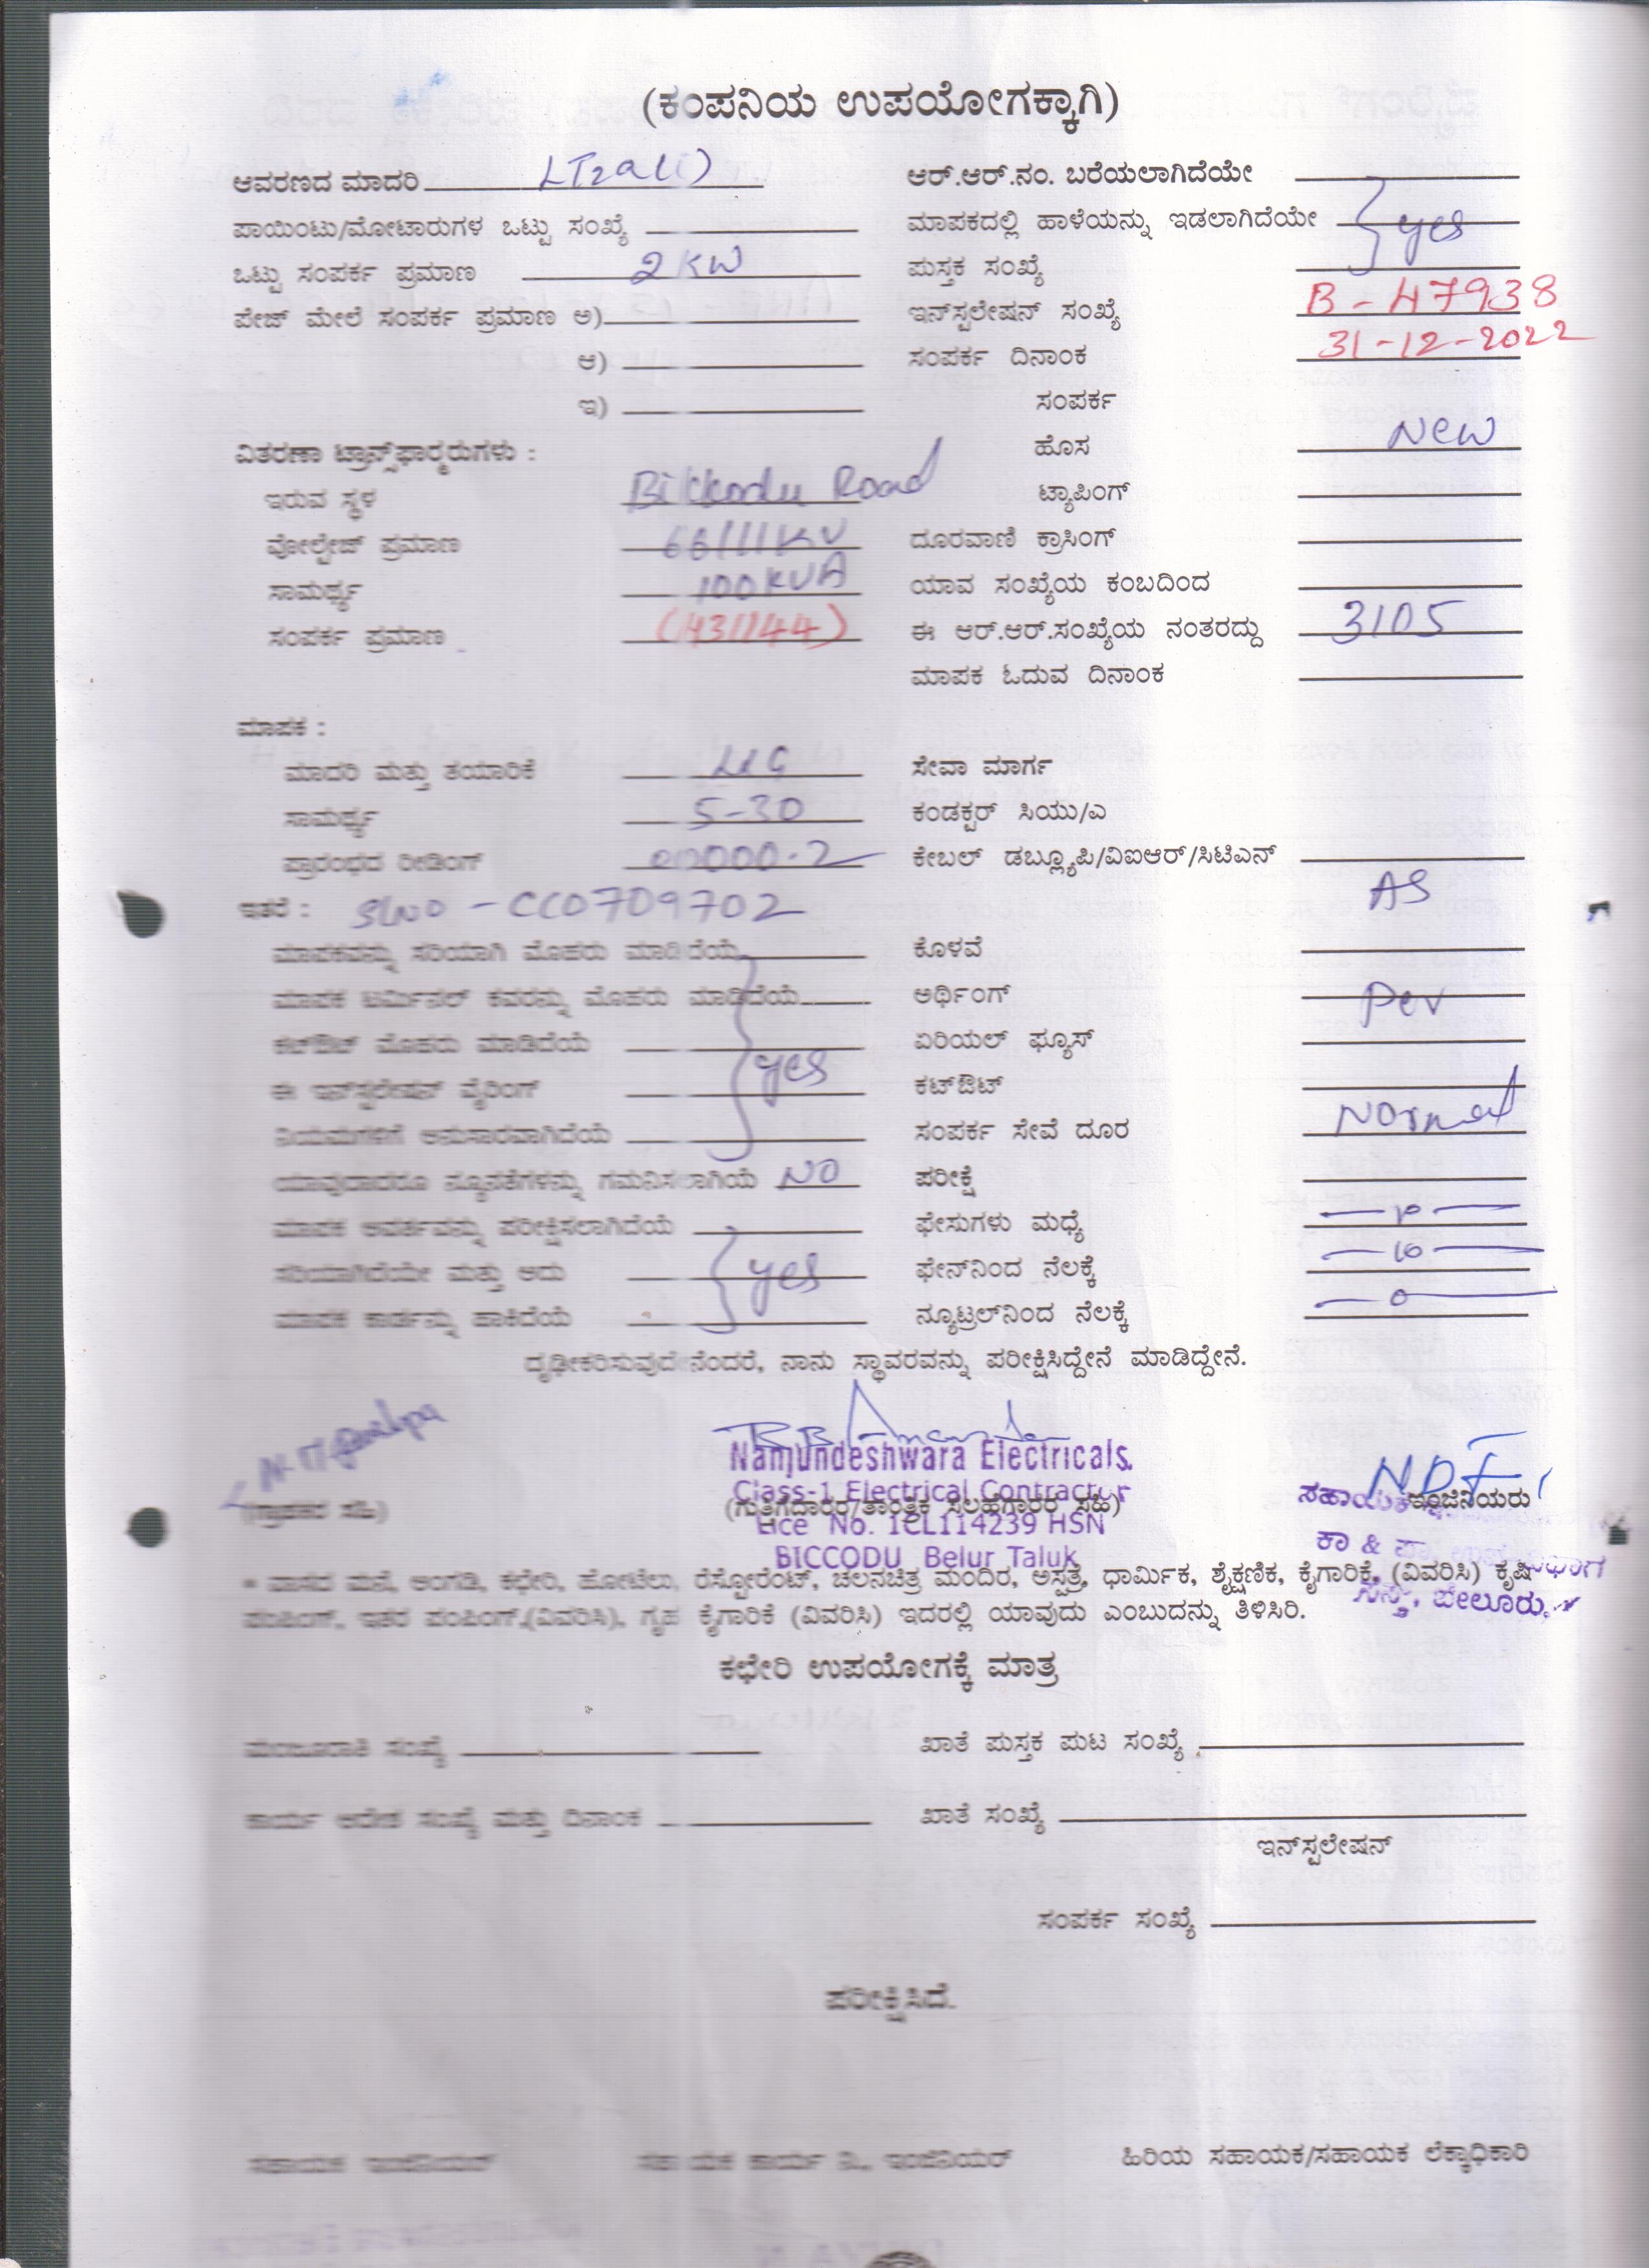 (ಕಂಪನಿಯ ಉಪಯೋಗಕ್ಕಾಗಿ)
ಆವರಣದ ಮಾದರಿ LT2a(i) ಆರ್.ಆರ್.ನಂ. ಬರೆಯಲಾಗಿದೆಯೇ
ಪಾಯಿಂಟು/ಮೋಟಾರುಗಳ ಒಟ್ಟು ಸಂಖ್ಯೆ ಮಾಪಕದಲ್ಲಿ ಹಾಳೆಯನ್ನು ಇಡಲಾಗಿದೆಯೇ yes
ಒಟ್ಟು ಸಂಪರ್ಕ ಪ್ರಮಾಣ 2 KW ಪುಸ್ತಕ ಸಂಖ್ಯೆ
ಪೇಜ್ ಮೇಲೆ ಸಂಪರ್ಕ ಪ್ರಮಾಣ ಅ) ಇನ್‌ಸ್ಟಲೇಷನ್ ಸಂಖ್ಯೆ B - 47938
ಆ) ಸಂಪರ್ಕ ದಿನಾಂಕ 31-12-2022
ಇ) ಸಂಪರ್ಕ
ವಿತರಣಾ ಟ್ರಾನ್ಸ್‌ಫಾರ್ಮರುಗಳು : ಹೊಸ New
ಇರುವ ಸ್ಥಳ Bikkodu Road ಟ್ಯಾಪಿಂಗ್
ವೋಲ್ಟೇಜ್ ಪ್ರಮಾಣ 66/11KV ದೂರವಾಣಿ ಕ್ರಾಸಿಂಗ್
ಸಾಮರ್ಥ್ಯ 100 KVA ಯಾವ ಸಂಖ್ಯೆಯ ಕಂಬದಿಂದ
ಸಂಪರ್ಕ ಪ್ರಮಾಣ ಈ ಆರ್.ಆರ್.ಸಂಖ್ಯೆಯ ನಂತರದ್ದು 3105
ಮಾಪಕ ಓದುವ ದಿನಾಂಕ
ಮಾಪಕ :
ಮಾದರಿ ಮತ್ತು ತಯಾರಿಕೆ ಸೇವಾ ಮಾರ್ಗ
ಸಾಮರ್ಥ್ಯ 5-30 ಕಂಡಕ್ಟರ್ ಸಿಯು/ಎ
ಪ್ರಾರಂಭದ ರೀಡಿಂಗ್ ಕೇಬಲ್ ಡಬ್ಲ್ಯೂಪಿ/ವಿಐಆರ್/ಸಿಟಿಎನ್
ಇತರೆ : SLNO - CC0709702 AS
ಮಾಪಕವನ್ನು ಸರಿಯಾಗಿ ಮೊಹರು ಮಾಡಿದೆಯೆ ಕೊಳವೆ
ಮಾಪಕ ಟರ್ಮಿನಲ್ ಕವರನ್ನು ಮೊಹರು ಮಾಡಿದೆಯೆ ಅರ್ಥಿಂಗ್ Per
ಕಟ್‌ಔಟ್ ಮೊಹರು ಮಾಡಿದೆಯೆ ಏರಿಯಲ್ ಫ್ಯೂಸ್
ಈ ಇನ್‌ಸ್ಟಲೇಷನ್ ವೈರಿಂಗ್ yes ಕಟ್‌ಔಟ್
ನಿಯಮಗಳಿಗೆ ಅನುಸಾರವಾಗಿದೆಯೆ ಸಂಪರ್ಕ ಸೇವೆ ದೂರ Normal
ಯಾವುದಾದರೂ ನ್ಯೂನತೆಗಳನ್ನು ಗಮನಿಸಲಾಗಿಯೆ NO ಪರೀಕ್ಷೆ
ಮಾಪಕ ಆವರ್ಕವನ್ನು ಪರೀಕ್ಷಿಸಲಾಗಿದೆಯೆ ಫೇಸುಗಳು ಮಧ್ಯೆ
ಸರಿಯಾಗಿದೆಯೇ ಮತ್ತು ಅದು yes ಫೇನ್‌ನಿಂದ ನೆಲಕ್ಕೆ
ಮಾಪಕ ಕಾರ್ಡನ್ನು ಹಾಕಿದೆಯೆ ನ್ಯೂಟ್ರಲ್‌ನಿಂದ ನೆಲಕ್ಕೆ 0
ದೃಢೀಕರಿಸುವುದೇನೆಂದರೆ, ನಾನು ಸ್ಥಾವರವನ್ನು ಪರೀಕ್ಷಿಸಿದ್ದೇನೆ ಮಾಡಿದ್ದೇನೆ.
Namjundeshwara Electricals.
Class-1 Electrical Contractor
(ಗ್ರಾಹಕರ ಸಹಿ) (ಗುತ್ತಿಗೆದಾರರ/ತಾಂತ್ರಿಕ ಸಲಹೆಗಾರರ ಸಹಿ) ಇಂಜಿನಿಯರು
Lice No. 1CL114239 HSN
BICCODU Belur Taluk
* ಮಾಸದ ಮನೆ, ಅಂಗಡಿ, ಕಛೇರಿ, ಹೋಟೆಲು, ರೆಸ್ಟೋರೆಂಟ್, ಚಲನಚಿತ್ರ ಮಂದಿರ, ಅಸ್ಪತ್ರೆ, ಧಾರ್ಮಿಕ, ಶೈಕ್ಷಣಿಕ, ಕೈಗಾರಿಕೆ, (ವಿವರಿಸಿ) ಕೃಷಿ
ಪಂಪಿಂಗ್, ಇತರ ಪಂಪಿಂಗ್,(ವಿವರಿಸಿ), ಗೃಹ ಕೈಗಾರಿಕೆ (ವಿವರಿಸಿ) ಇದರಲ್ಲಿ ಯಾವುದು ಎಂಬುದನ್ನು ತಿಳಿಸಿರಿ. ಬೇಲೂರು.
ಕಛೇರಿ ಉಪಯೋಗಕ್ಕೆ ಮಾತ್ರ
ಮಂಜೂರಾತಿ ಸಂಖ್ಯೆ ಖಾತೆ ಪುಸ್ತಕ ಪುಟ ಸಂಖ್ಯೆ
ಕಾರ್ಯ ಆದೇಶ ಸಂಖ್ಯೆ ಮತ್ತು ದಿನಾಂಕ ಖಾತೆ ಸಂಖ್ಯೆ
ಇನ್‌ಸ್ಪಲೇಷನ್
ಸಂಪರ್ಕ ಸಂಖ್ಯೆ
ಪರೀಕ್ಷಿಸಿದೆ.
ಸಹಾಯಕ ಇಂಜಿನಿಯರ್ ಸಹಾಯಕ ಕಾರ್ಯ ನಿ., ಇಂಜಿನಿಯರ್ ಹಿರಿಯ ಸಹಾಯಕ/ಸಹಾಯಕ ಲೆಕ್ಕಾಧಿಕಾರಿ